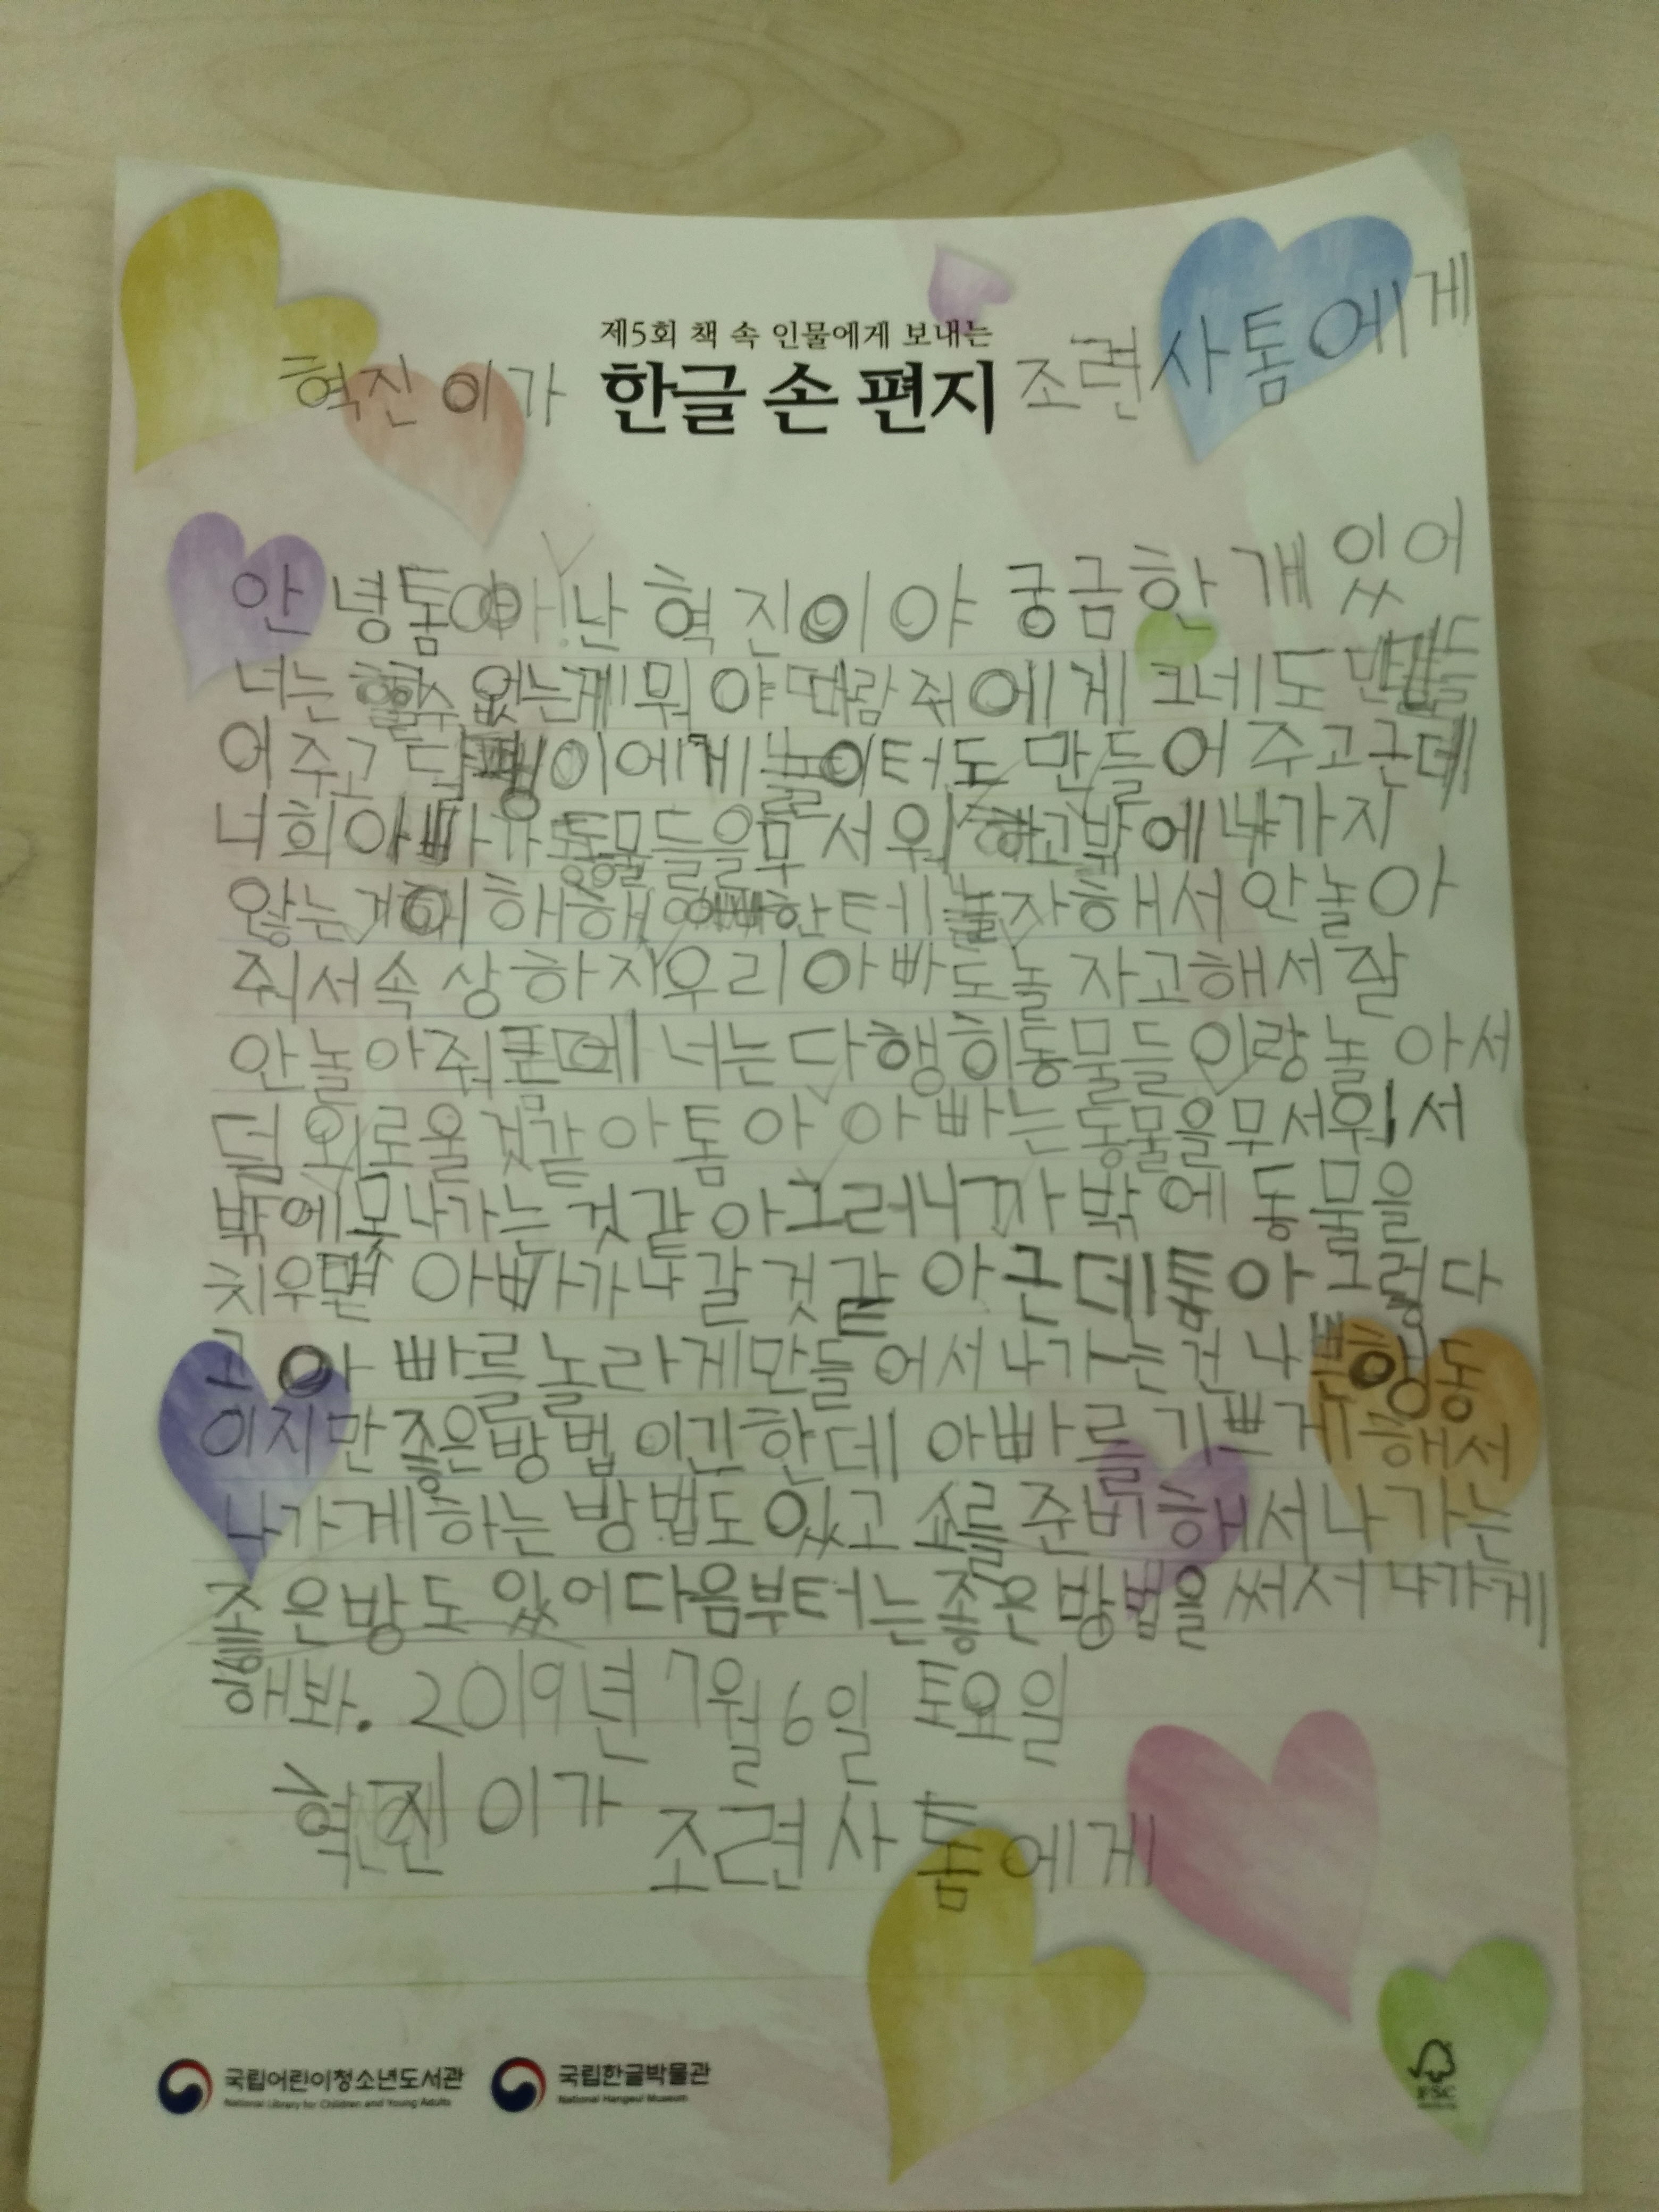 제5회 책 속 인물에게 보내는
혁진이가 한글 손 편지 조련사톰에게
안녕톰아! 난 혁진이야 궁금한 게 있어
너는 할수 없는게 뭐야 다람쥐에게 그네도 만들
어주고 달팽이에게 놀이터도 만들어 주고근데
너희아빠가 동물들을무서워 하고밖에 나가지
않는거 이해해 아빠한테 놀자해서 안놀아
줘서속상하지우리아빠도놀자고해서잘
안놀아줘근데 너는다행히동물들이랑 놀아서
덜 외로울것같아톰아 아빠는동물을무서워서
밖에못나가는것같아그러니까 밖에 동물을
치우면 아빠가나갈것같아근데톰아그렇다
고 아빠를놀라게만들어서나가는건나쁜행동
이지만좋은방법이긴한데 아빠를기쁘게해서
나가게하는 방법도있고 쇼를준비해서나가는
좋은방도있어다음부터는좋은방법을써서나가게
해봐. 2019년 7월6일 토요일
혁진이가 조련사톰에게
국립어린이청소년도서관
National Library for Children and Young Adults
국립한글박물관
National Hangeul Museum
FSC